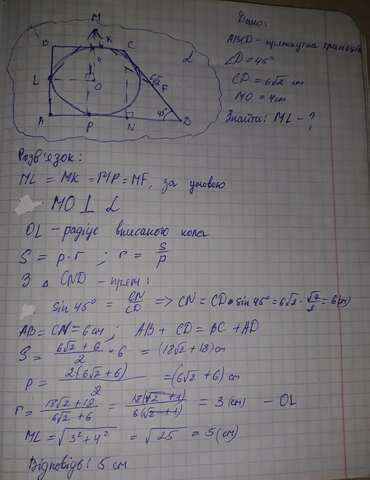 Дано:
ABCD - прямокутна трапеція
∠D = 45°
CD = 6√2 см
MO = 4 см
Знайти: ML - ?
M
B K C
L O 6√2 F
45°
A P N D
α
Розв'язок:
ML = MK = MP = MF, за умовою
MO ⊥ α
OL - радіус вписаного кола
S = p · r ; r = S/p
З △ CND - прям:
sin 45° = CN/CD => CN = CD • sin 45° = 6√2 · √2/2 = 6 (см)
AB = CN = 6 см ; AB + CD = BC + AD
S = (6√2 + 6)/2 · 6 = (18√2 + 18) см
p = 2(6√2 + 6)/2 = (6√2 + 6) см
r = (18√2 + 18)/(6√2 + 6) = 18(√2 + 1)/6(√2 + 1) = 3 (см) - OL
ML = √3² + 4² = √25 = 5 (см)
Відповідь: 5 см